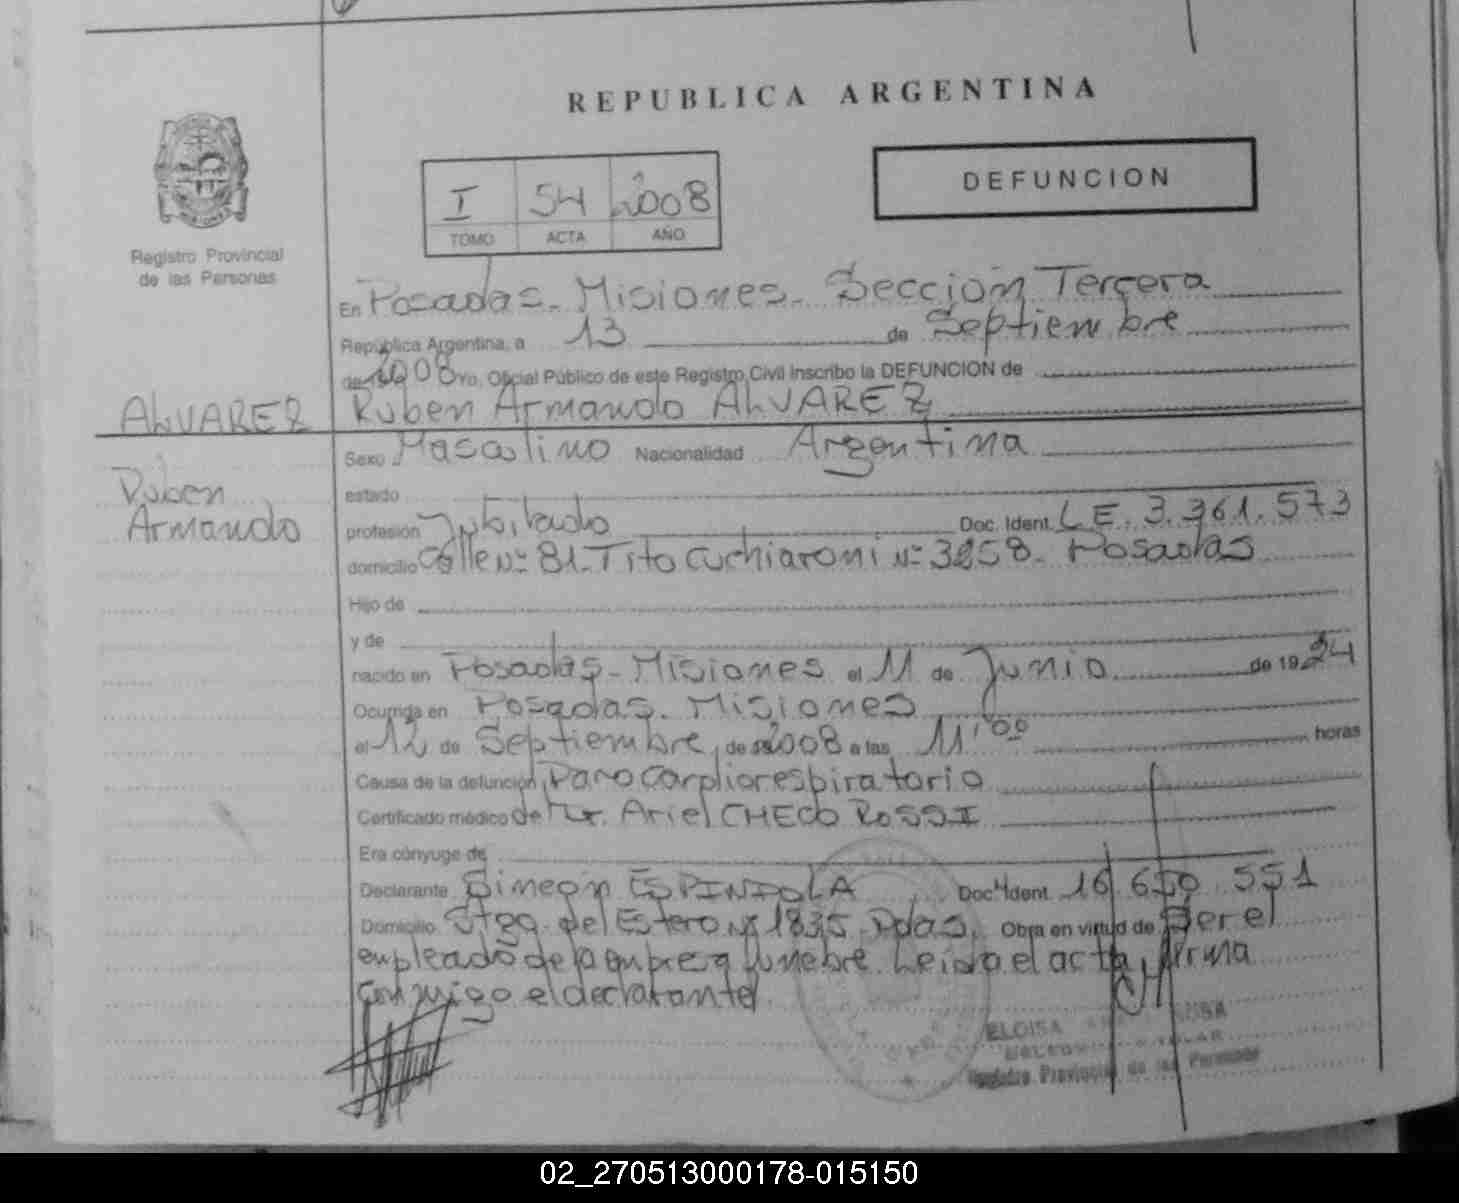 REPUBLICA ARGENTINA
Registro Provincial
de las Personas
I 54 2008
TOMO ACTA AÑO
DEFUNCION
En Posadas - Misiones - Sección Tercera
República Argentina, a 13 de Septiembre
de 2008 Yo, Oficial Público de este Registro Civil inscribo la DEFUNCION de
ALVAREZ Ruben Armando ALVAREZ
Ruben
Armando
Sexo Masculino Nacionalidad Argentina
estado
profesión Jubilado Doc. Ident. LE. 3.361.573
domicilio Calle Nº 81 - Tito Cuchiaroni Nº 3258 - Posadas
Hijo de
y de
nacido en Posadas - Misiones el 11 de Junio de 1924
Ocurrida en Posadas - Misiones
el 12 de Septiembre de 2008 a las 11'00 horas
Causa de la defunción Paro Cardiorespiratorio
Certificado médico del Dr. Ariel CHECO ROSSI
Era cónyuge de
Declarante Simeón ESPINDOLA Doc. Ident. 16.650.551
Domicilio Stgo. del Estero Nº 1835 - Pdas. Obra en virtud de Ser el
empleado de la empresa fúnebre. Leida el acta, firma
conmigo el declarante
ELOISA SOSA
Registro Provincial de las Personas
02_270513000178-015150